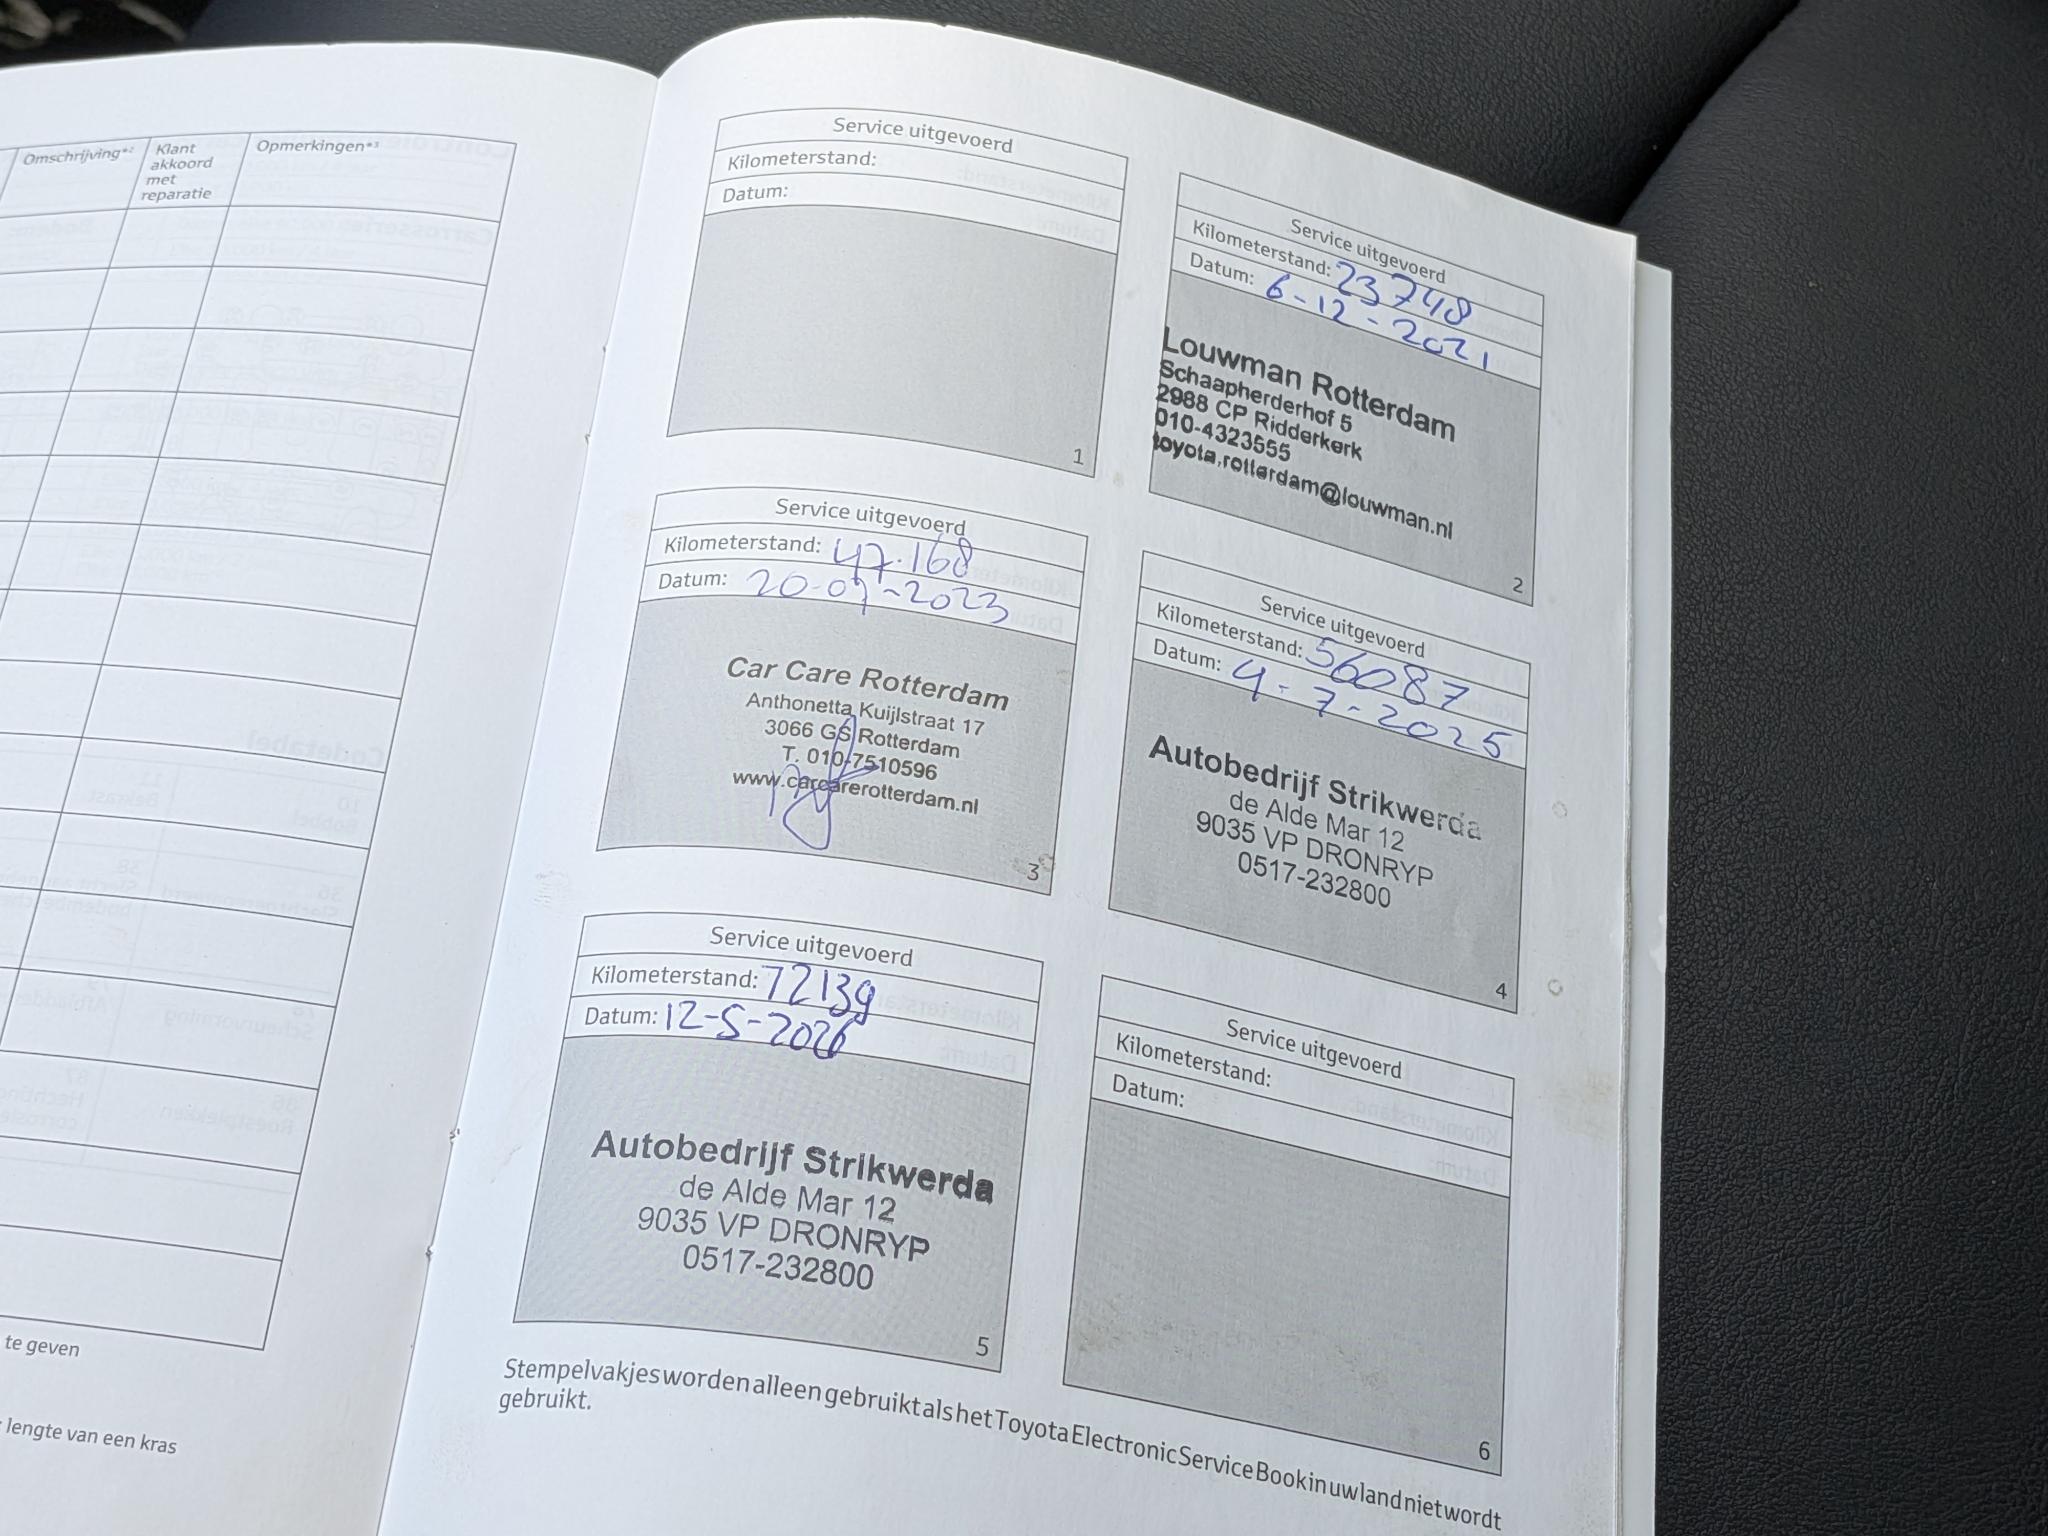 Omschrijving*²
Klant
akkoord
met
reparatie
Opmerkingen*³
te geven
lengte van een kras
Service uitgevoerd
Kilometerstand:
Datum:
1
Service uitgevoerd
Kilometerstand: 23748
Datum: 6-12-2021
Louwman Rotterdam
Schaapherderhof 5
2988 CP Ridderkerk
010-4323555
toyota.rotterdam@louwman.nl
2
Service uitgevoerd
Kilometerstand: 47.168
Datum: 20-07-2023
Car Care Rotterdam
Anthonetta Kuijlstraat 17
3066 GS Rotterdam
T. 010-7510596
www.carcarerotterdam.nl
3
Service uitgevoerd
Kilometerstand: 56087
Datum: 4-7-2025
Autobedrijf Strikwerda
de Alde Mar 12
9035 VP DRONRYP
0517-232800
4
Service uitgevoerd
Kilometerstand: 72139
Datum: 12-5-2026
Autobedrijf Strikwerda
de Alde Mar 12
9035 VP DRONRYP
0517-232800
5
Service uitgevoerd
Kilometerstand:
Datum:
6
Stempelvakjes worden alleen gebruikt als het Toyota Electronic Service Book in uw land niet wordt
gebruikt.